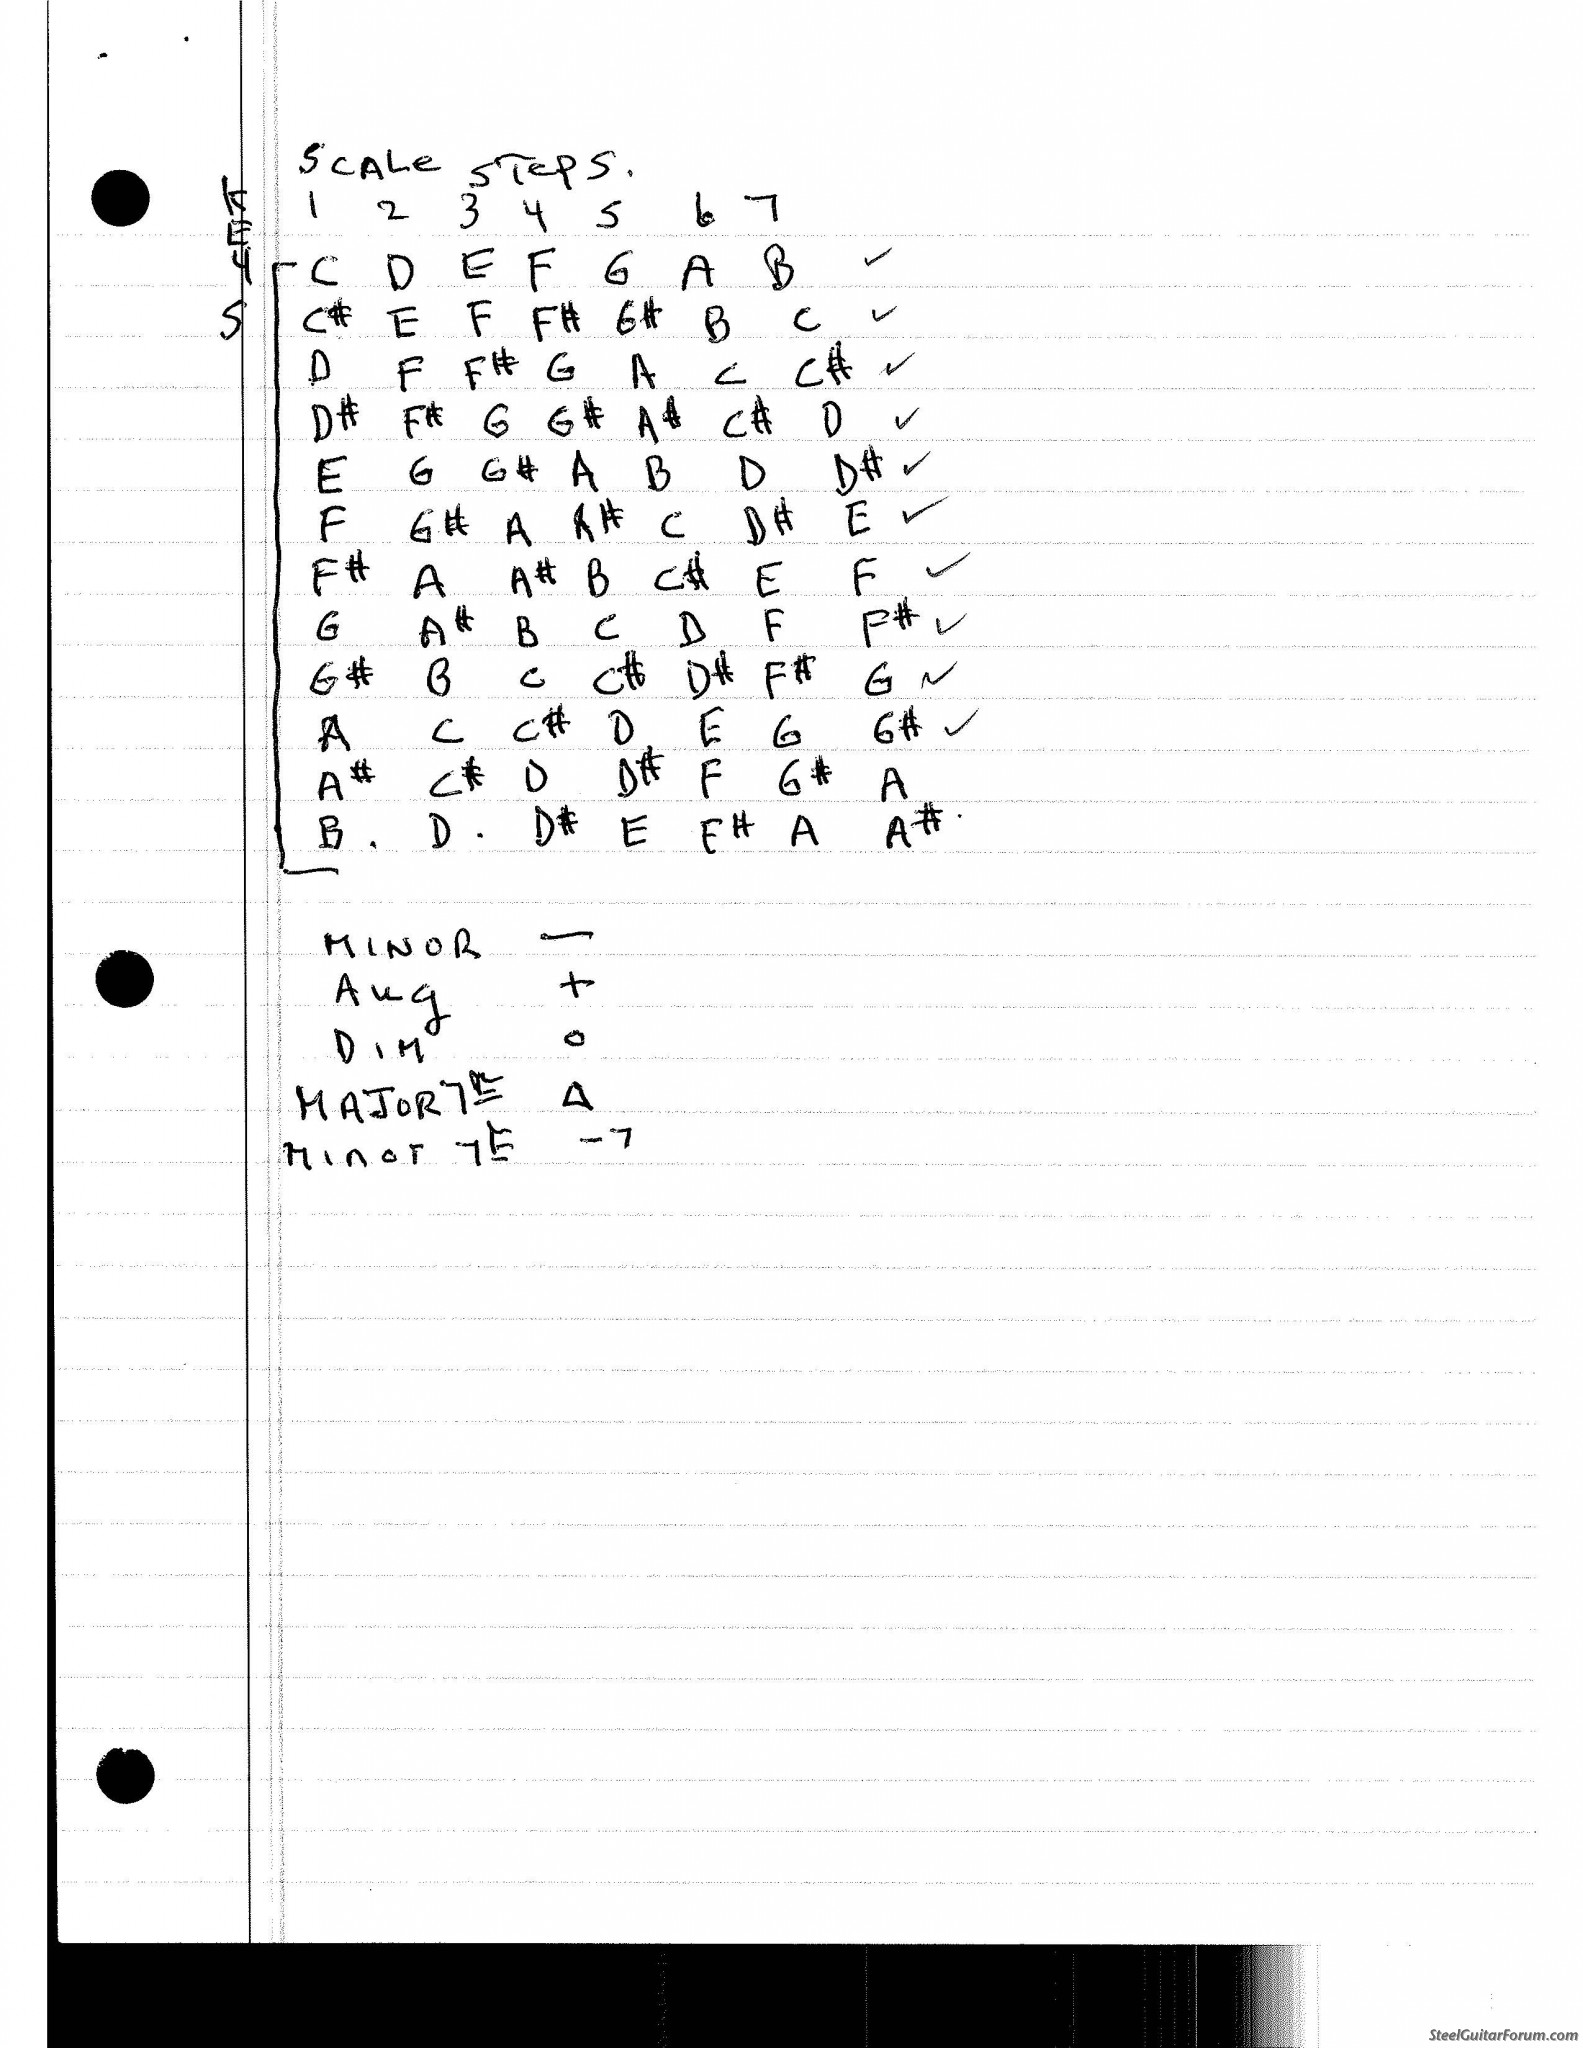 SCALE STEPS.
KEYS
1 2 3 4 5 6 7
C D E F G A B ✓
C# E F F# G# B C ✓
D F F# G A C C# ✓
D# F# G G# A# C# D ✓
E G G# A B D D# ✓
F G# A A# C D# E ✓
F# A A# B C# E F ✓
G A# B C D F F# ✓
G# B C C# D# F# G ✓
A C C# D E G G# ✓
A# C# D D# F G# A
B. D. D# E F# A A#.
MINOR —
Aug +
DIM o
MAJOR 7E Δ
Minor 7E -7
SteelGuitarForum.com